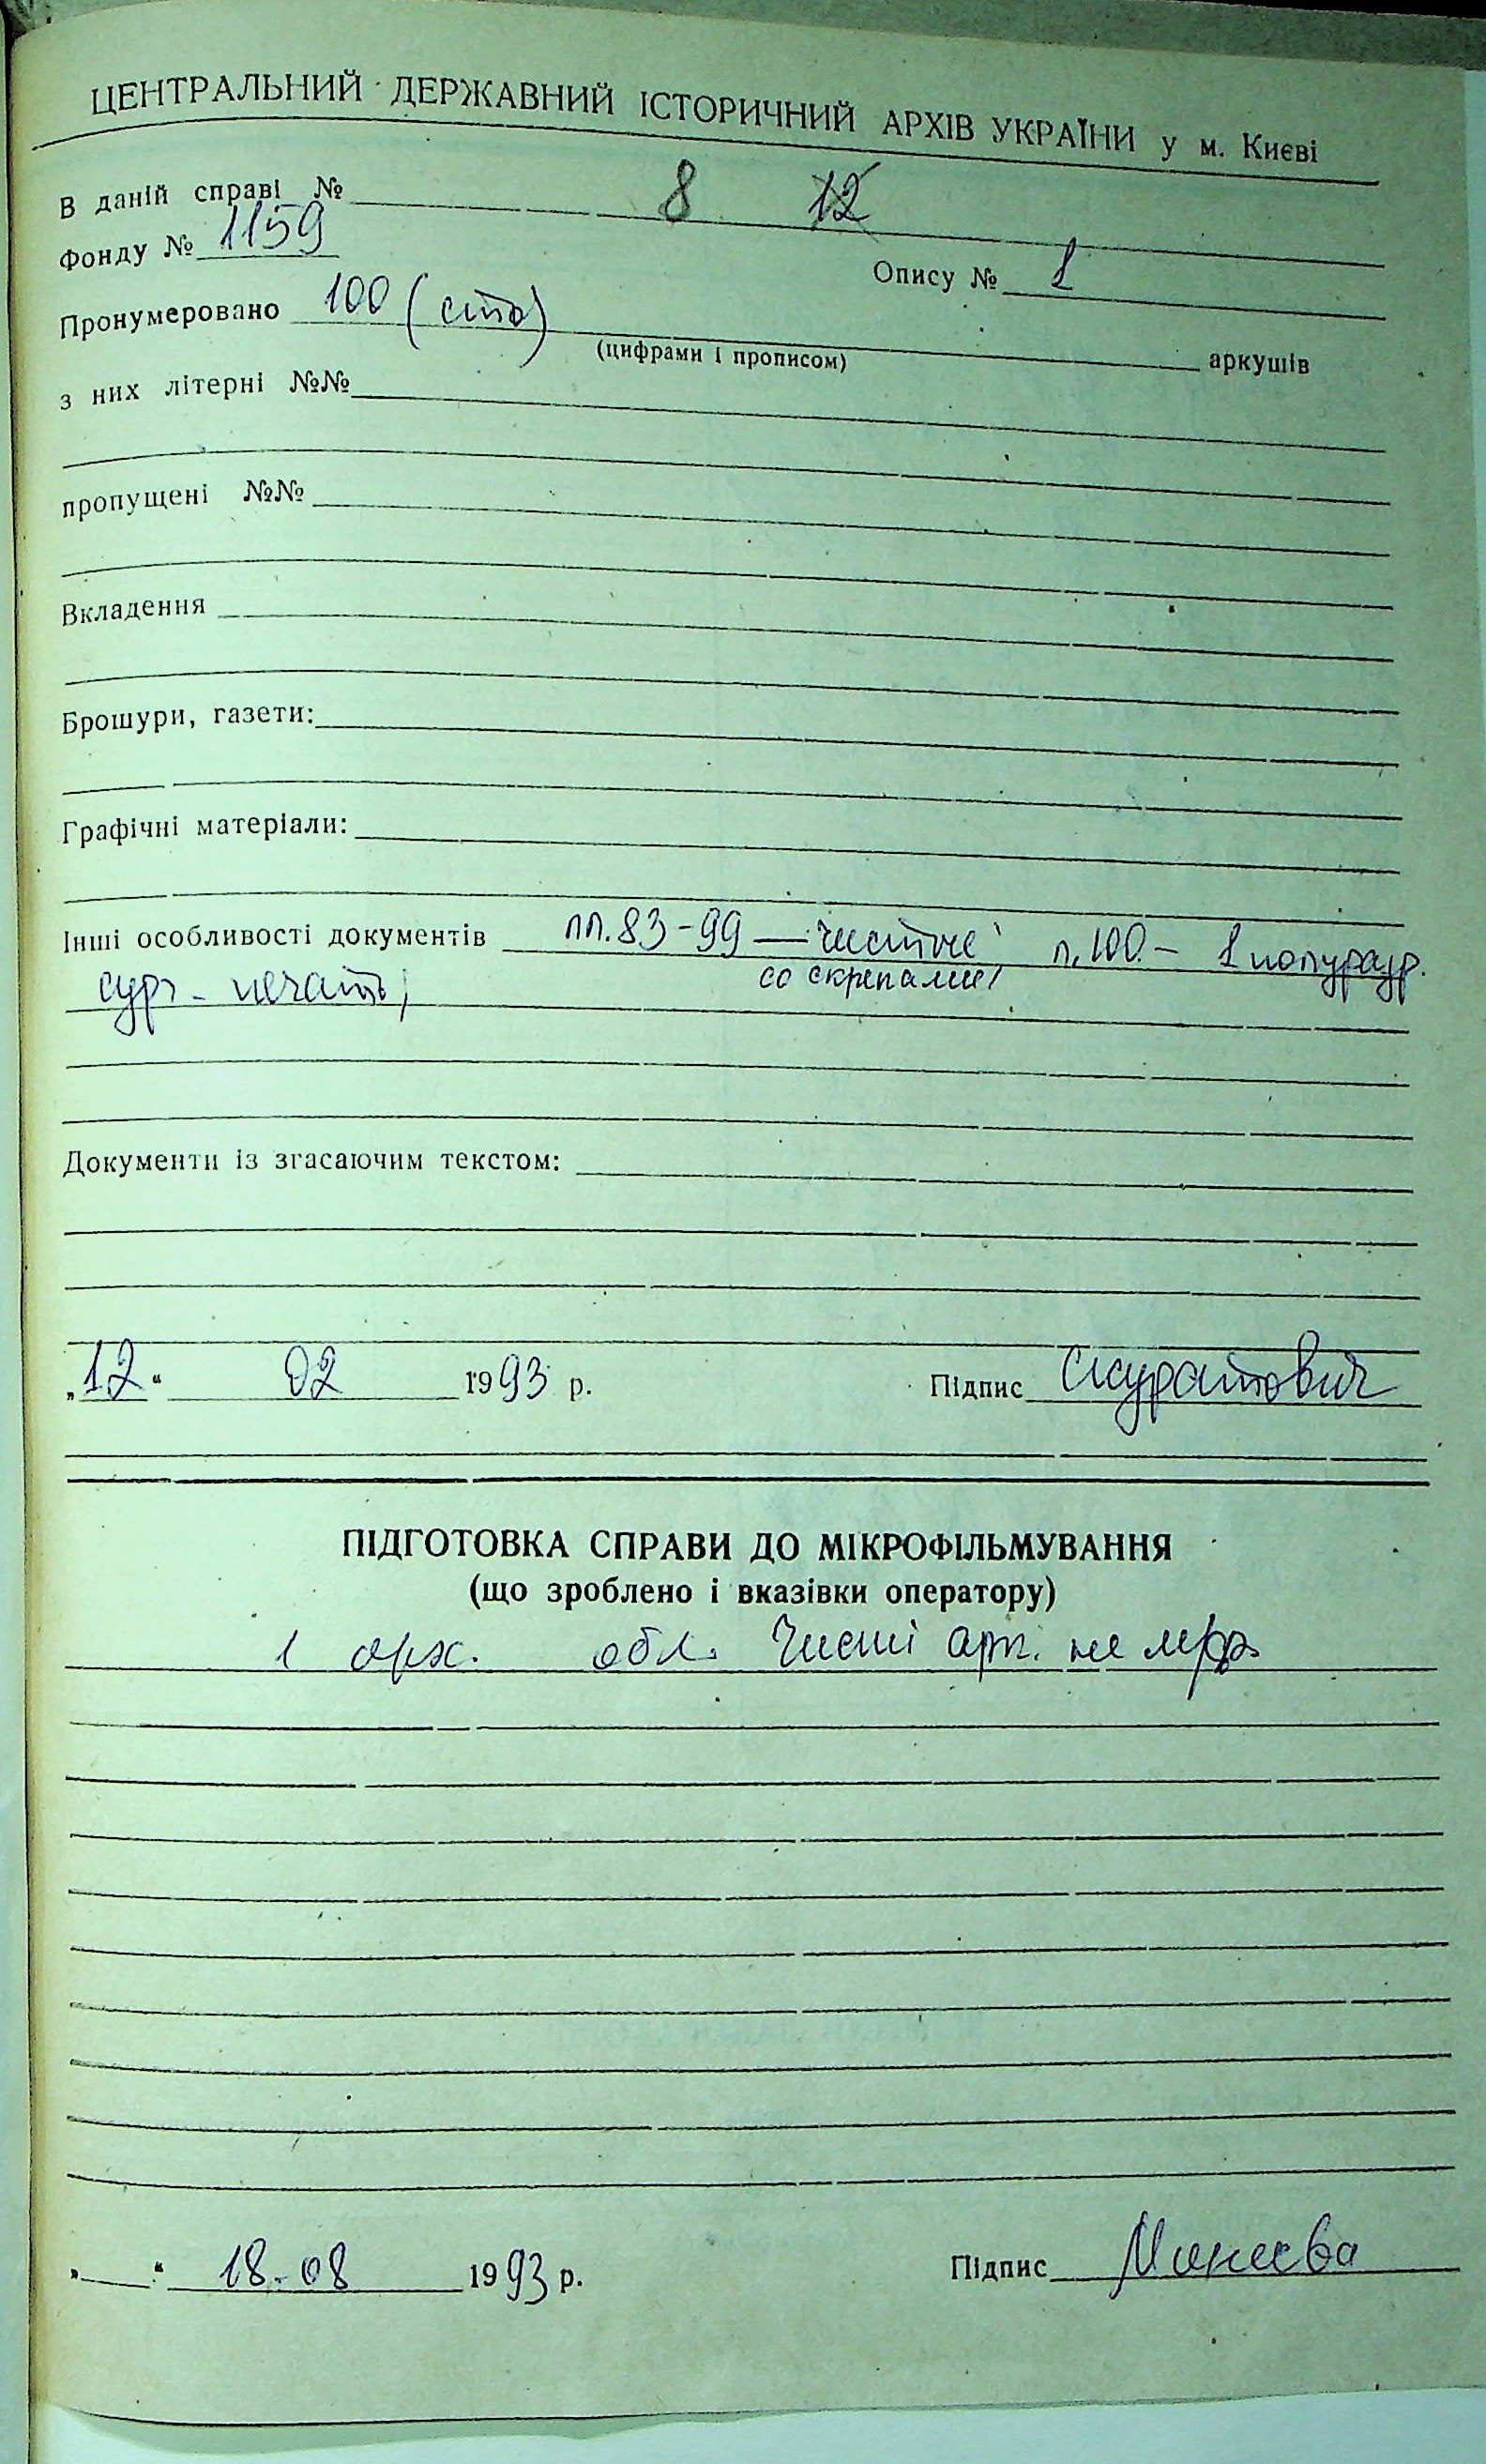 ЦЕНТРАЛЬНИЙ ДЕРЖАВНИЙ ІСТОРИЧНИЙ АРХІВ УКРАЇНИ у м. Києві
В даній справі № 8 12
Фонду № 1159 Опису № 1
Пронумеровано 100 (сто) аркушів
(цифрами і прописом)
з них літерні №№
пропущені №№
Вкладення
Брошури, газети:
Графічні матеріали:
Інші особливості документів лл. 83-99 — чистые, л. 100 - 1 полуразр.
со скрепами,
сург. печать;
Документи із згасаючим текстом:
„12“ 02 1993 р. Підпис Скуратович
ПІДГОТОВКА СПРАВИ ДО МІКРОФІЛЬМУВАННЯ
(що зроблено і вказівки оператору)
1 арх. обл. Чисті арк. не мф.
„ “ 18-08 1993 р. Підпис